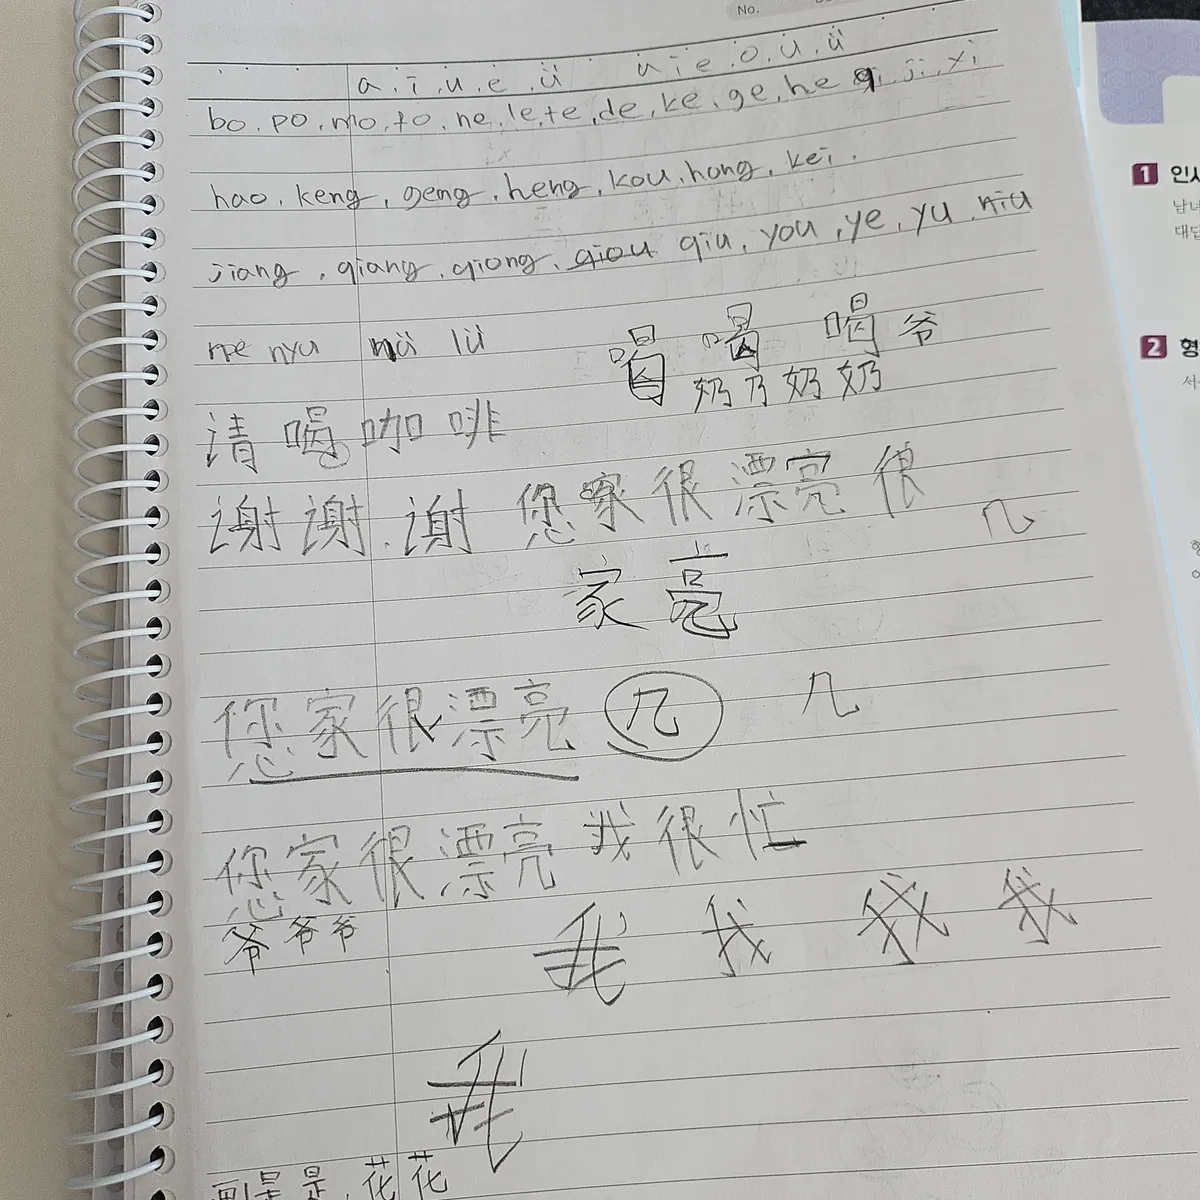 No.
a. ī. u. e. ü u i e. o. u. ü
bo. po. mo. fo. ne. le. te, de, ke, ge, he qi. ji. xi
hao, keng, geng, heng, kou, hong, kei.
jiang, qiang, qiong, qiou qiu, you, ye, yu, niu
nyu nü lü 喝 喝 喝 爷
奶 乃 奶 奶
请 喝 咖 啡
谢 谢. 谢 您 家 很 漂 亮 很
几
家 亮
您 家 很 漂 亮 几 几
您 家 很 漂 亮 我 很 忙
爷 爷 爷
我 我 我 我
我
是 是. 花 花
1 인사
남녀
대답
2 형
서